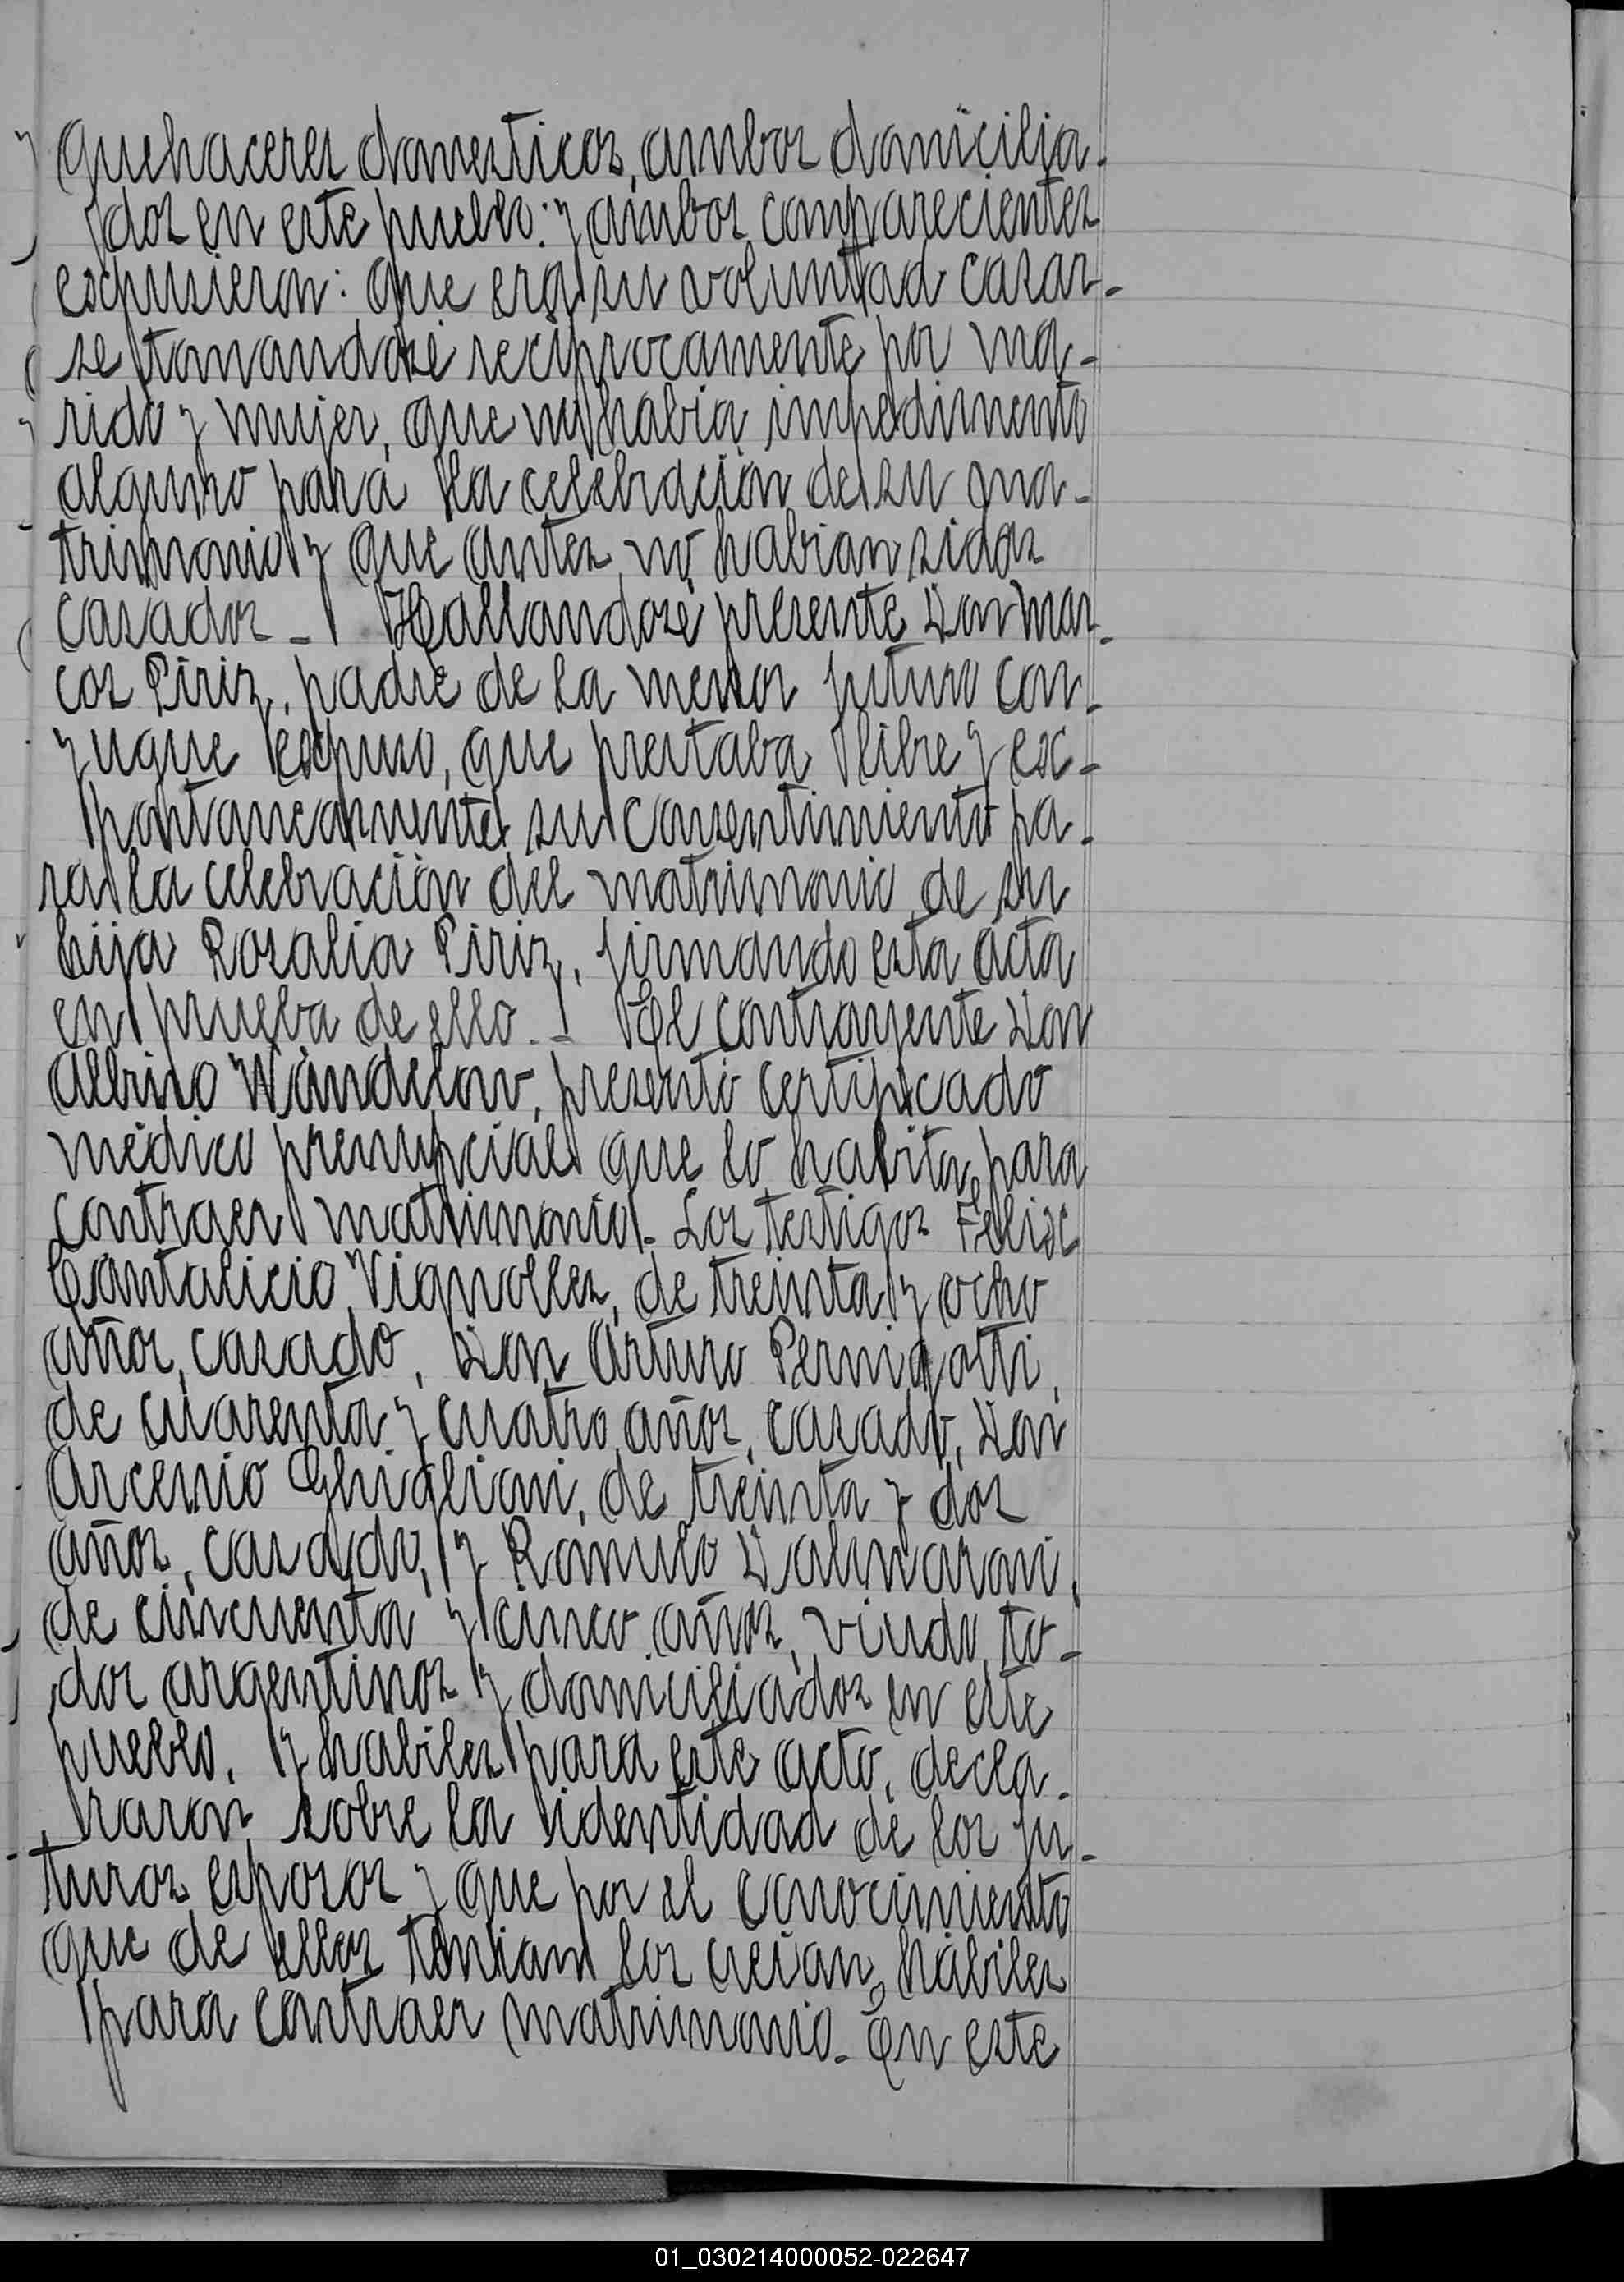 quehaceres domesticos, ambos domicilia-
dos en este pueblo: y ambos comparecientes
expusieron: que era su voluntad casar-
se tomandose reciprocamente por ma-
rido y mujer, que no habia impedimento
alguno para la celebración de su ma-
trimonio y que antes no habian sidos
casados - Hallandose presente Don Mar-
cos Piriz, padre de la menor futuro con-
yugue expuso, que prestaba libre y ex-
pontaneamente su consentimiento pa-
ra la celebración del matrimonio de su
hija Rosalia Piriz, firmando esta acta
en prueba de ello. - El contrayente Don
Albino Wandelow, presentó certificado
médico prenupcial que lo habita para
contraer matrimonio. Los testigos Felix
Cantalicio Vignolles, de treinta y ocho
años, casado, Don Arturo Pernigotti,
de cuarenta y cuatro años, casado, Don
Arcenio Ghiglioni, de treinta y dos
años, casado, y Romulo Dalmaroni,
de cincuenta y cinco años, viudo, to-
dos argentinos y domiciliados en este
pueblo, y habiles para este acto, decla-
raron sobre la identidad de los fu-
turos esposos y que por el conocimiento
que de ellos tenian los creian hábiles
para contraer matrimonio. En este
01_030214000052-022647